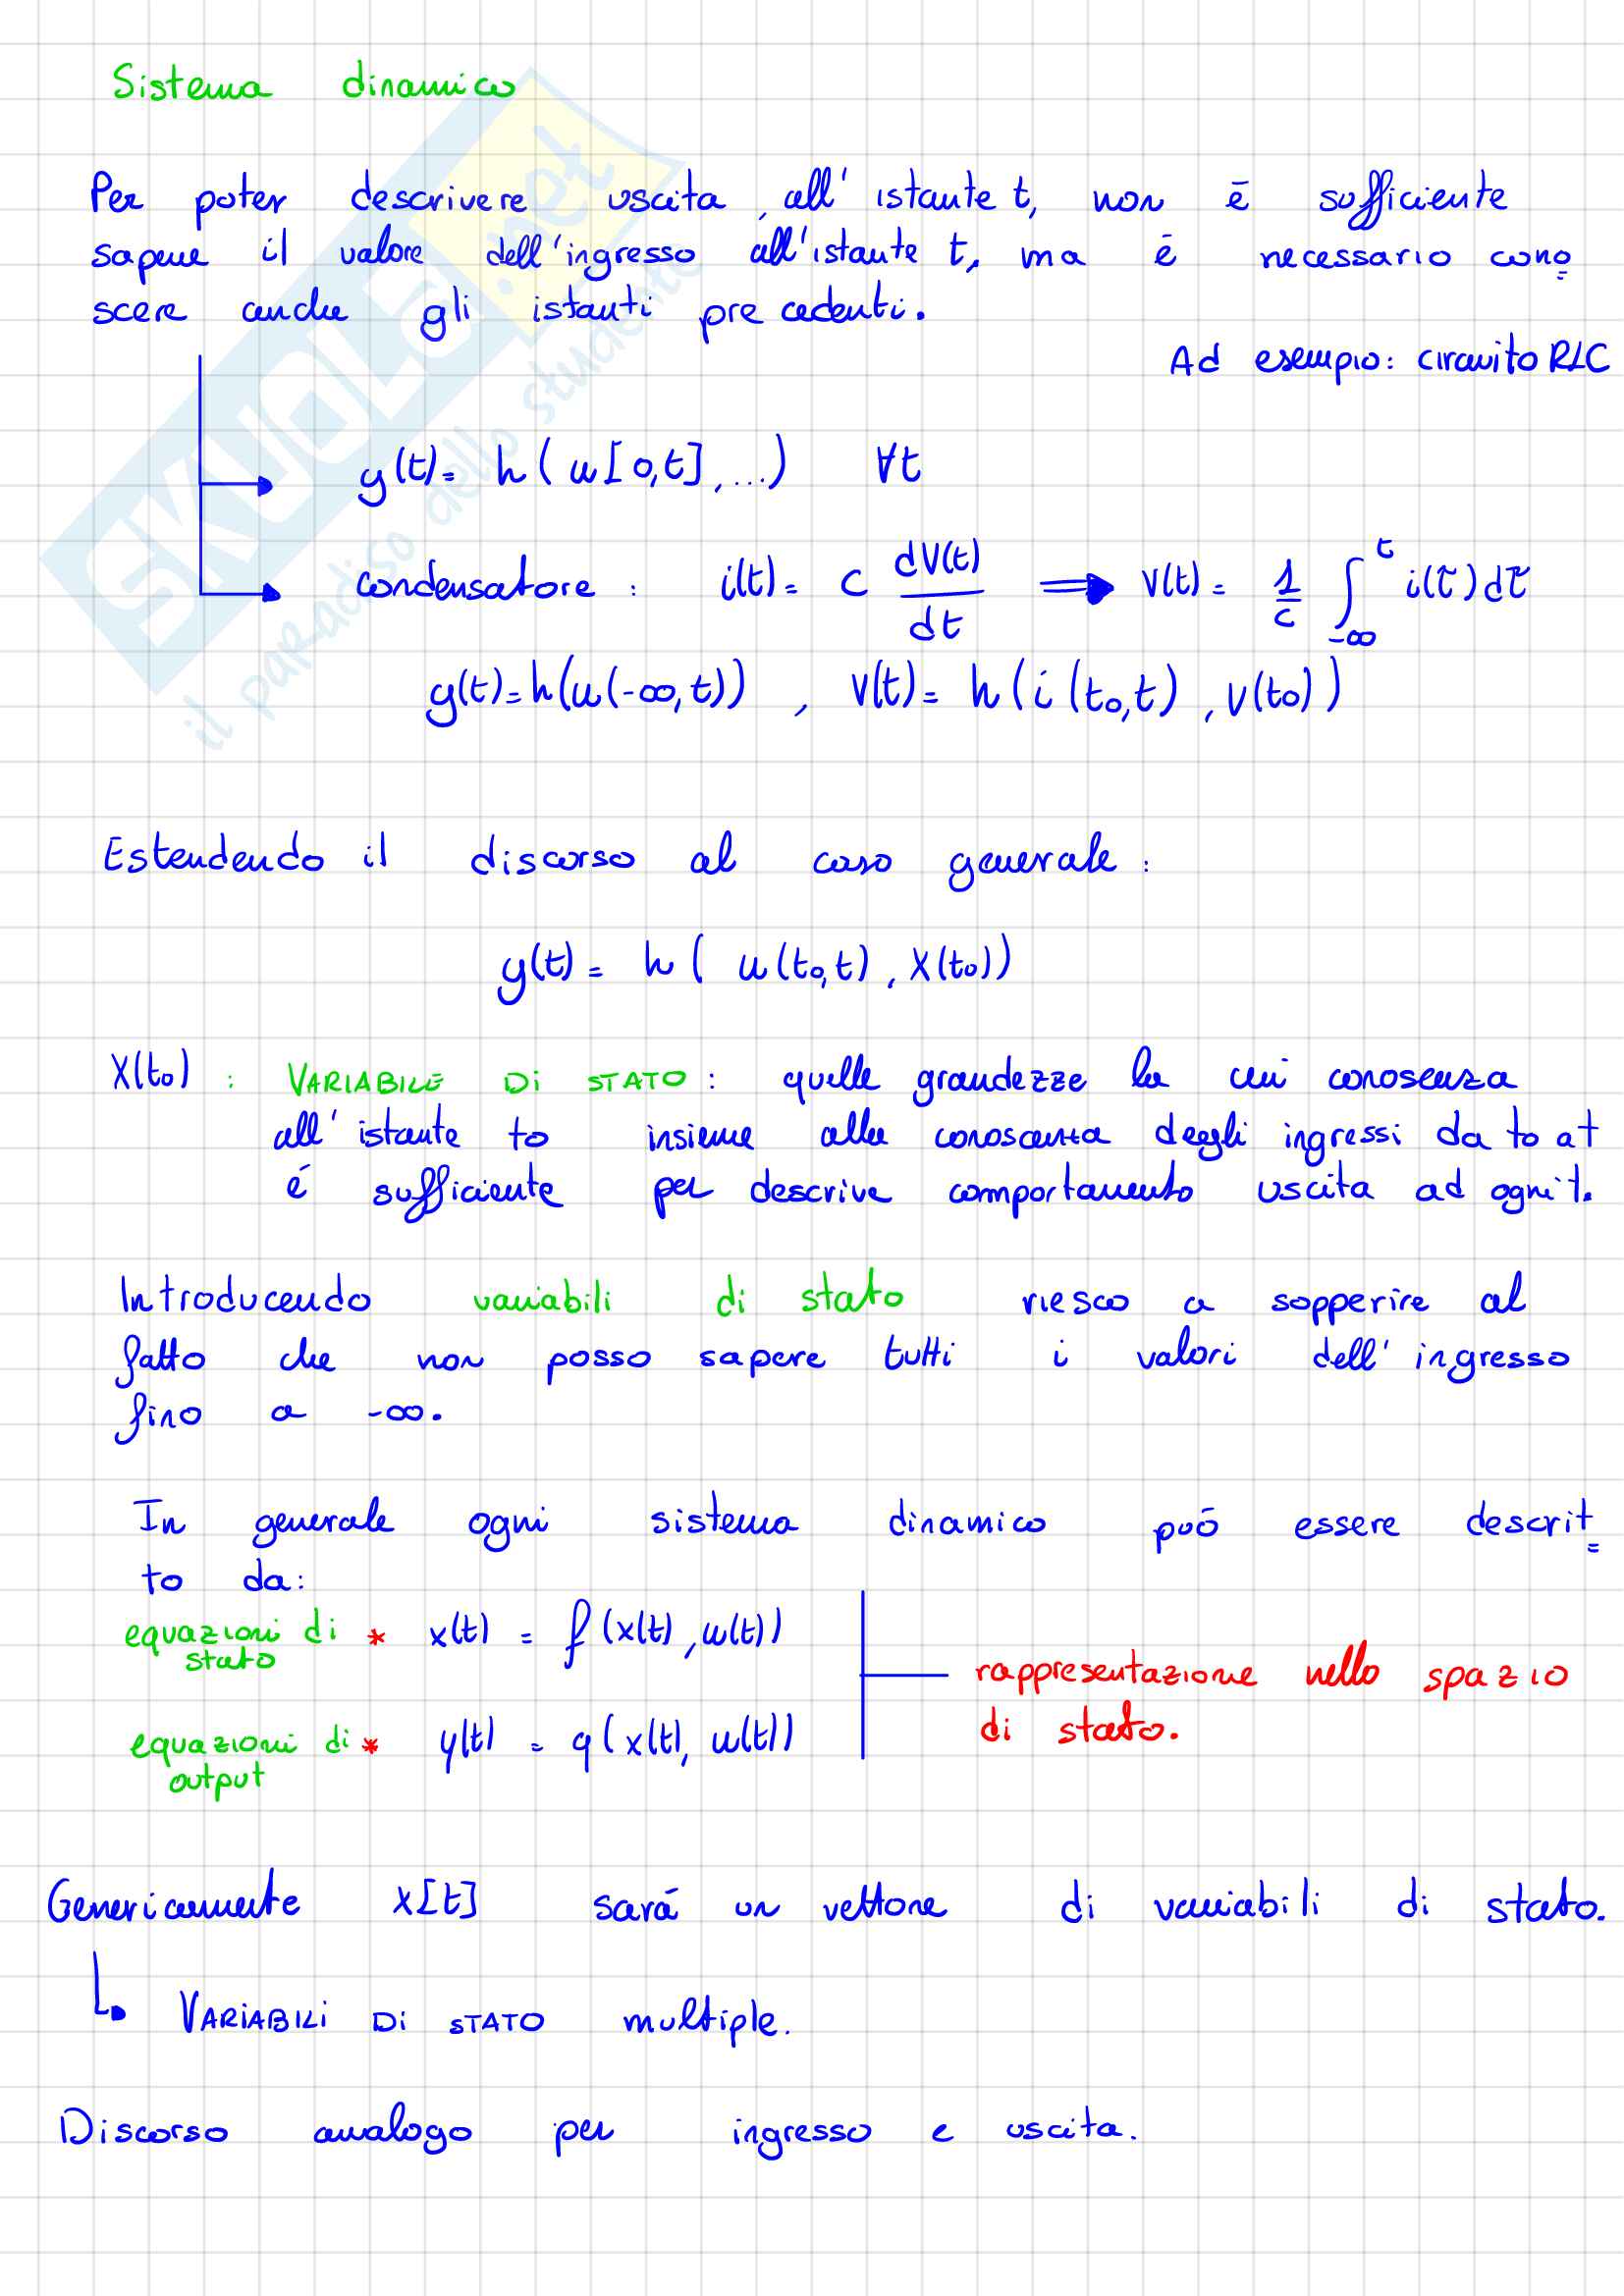 Sistema dinamico
Per poter descrivere uscita all'istante t, non é sufficiente
sapere il valore dell'ingresso all'istante t, ma é necessario cono=
scere anche gli istanti precedenti.
Ad esempio: circuito RLC
y(t)= h(u[0,t],...) ∀t
condensatore: i(t)= C dV(t)/dt ⟹ V(t)= 1/C ∫_{-∞}^{t} i(τ)dτ
y(t)=h(u(-∞,t)) , V(t)= h(i(t₀,t), V(t₀))
Estendendo il discorso al caso generale:
y(t)= h( u(t₀,t), X(t₀))
X(t₀): VARIABILE DI STATO: quelle grandezze la cui conoscenza
all'istante to insieme alla conoscenza degli ingressi da to a t
é sufficiente per descrive comportamento uscita ad ogni t.
Introducendo variabili di stato riesco a sopperire al
fatto che non posso sapere tutti i valori dell'ingresso
fino a -∞.
In generale ogni sistema dinamico può essere descrit=
to da:
equazioni di stato * x(t) = f(x(t), u(t))
rappresentazione nello spazio
di stato.
equazioni di output * y(t) = g(x(t), u(t))
Genericamente x[t] sará un vettore di variabili di stato.
VARIABILI DI STATO multiple.
Discorso analogo per ingresso e uscita.
SKUOLa.net
il paradiso dello studente